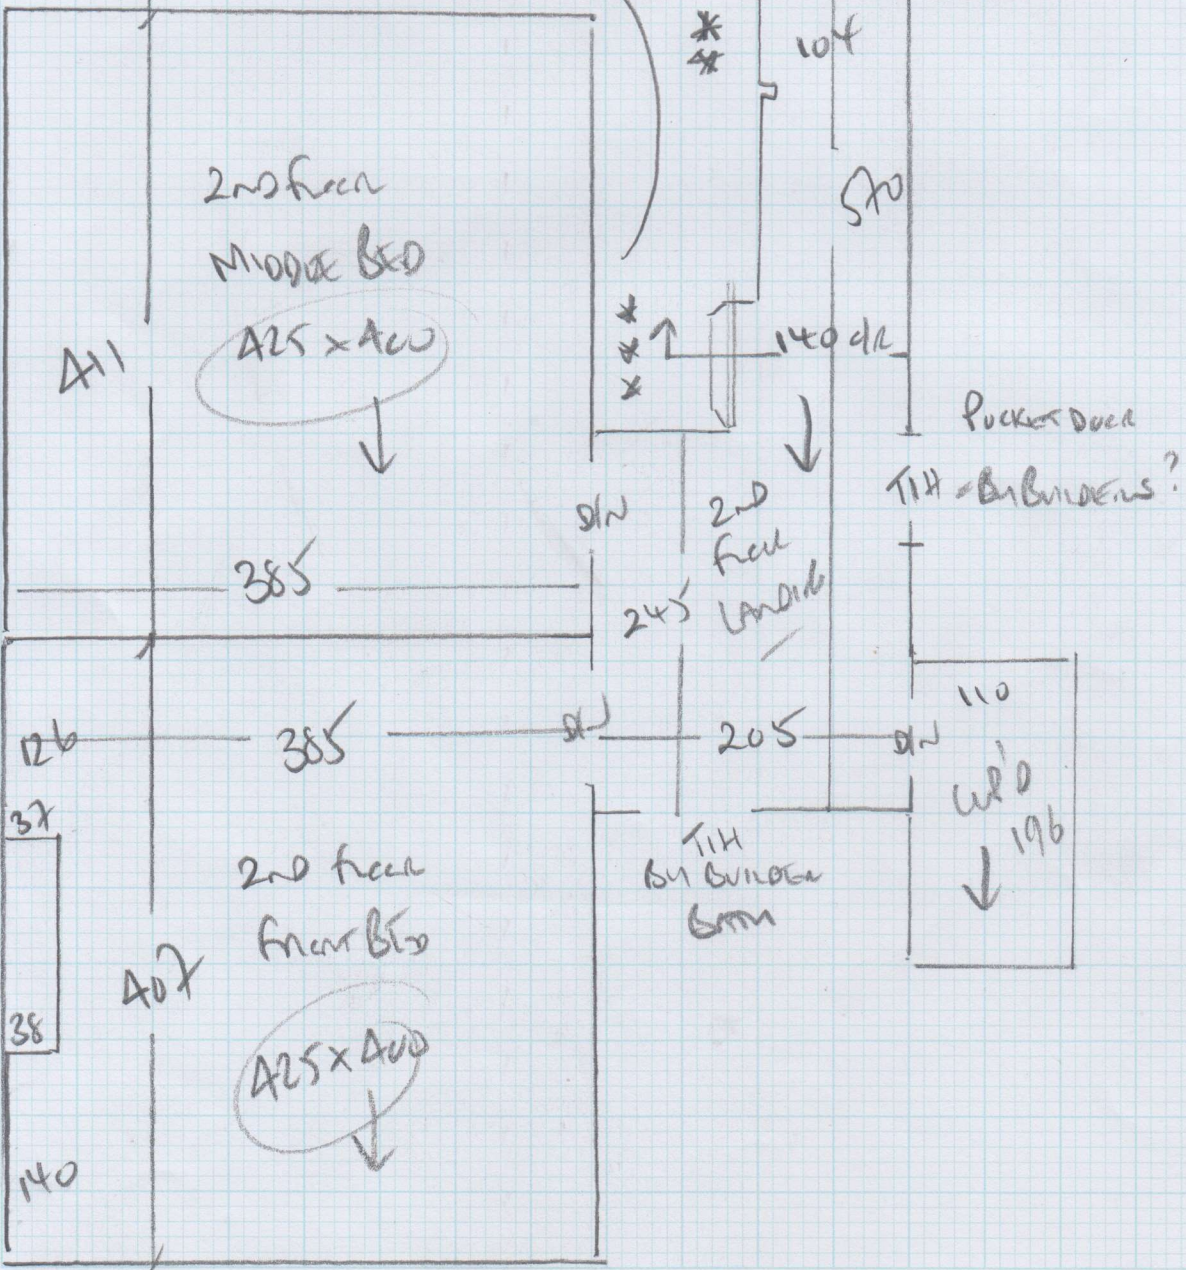 **
104
570
2ND FLOOR
MIDDLE BED
425 x 400
411
***
140 c/r
POCKET DOOR
TIH - BY BUILDERS?
D/N
2ND
FLOOR
LANDING
385
245
126
385
D/N
205
D/N
110
CUP'D
196
37
2ND FLOOR
FRONT BED
TIH
BY BUILDER
BATH
407
38
425 x 400
140